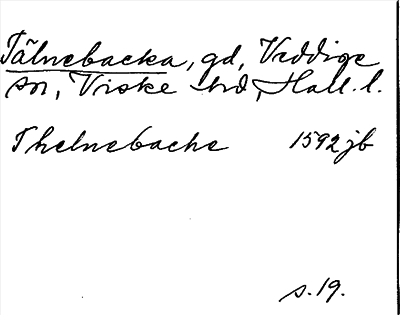 Tälnebacka, gd, Veddige
sn, Viske hd, Hall. l.
Thelnebacke 1592 jb
s. 19.